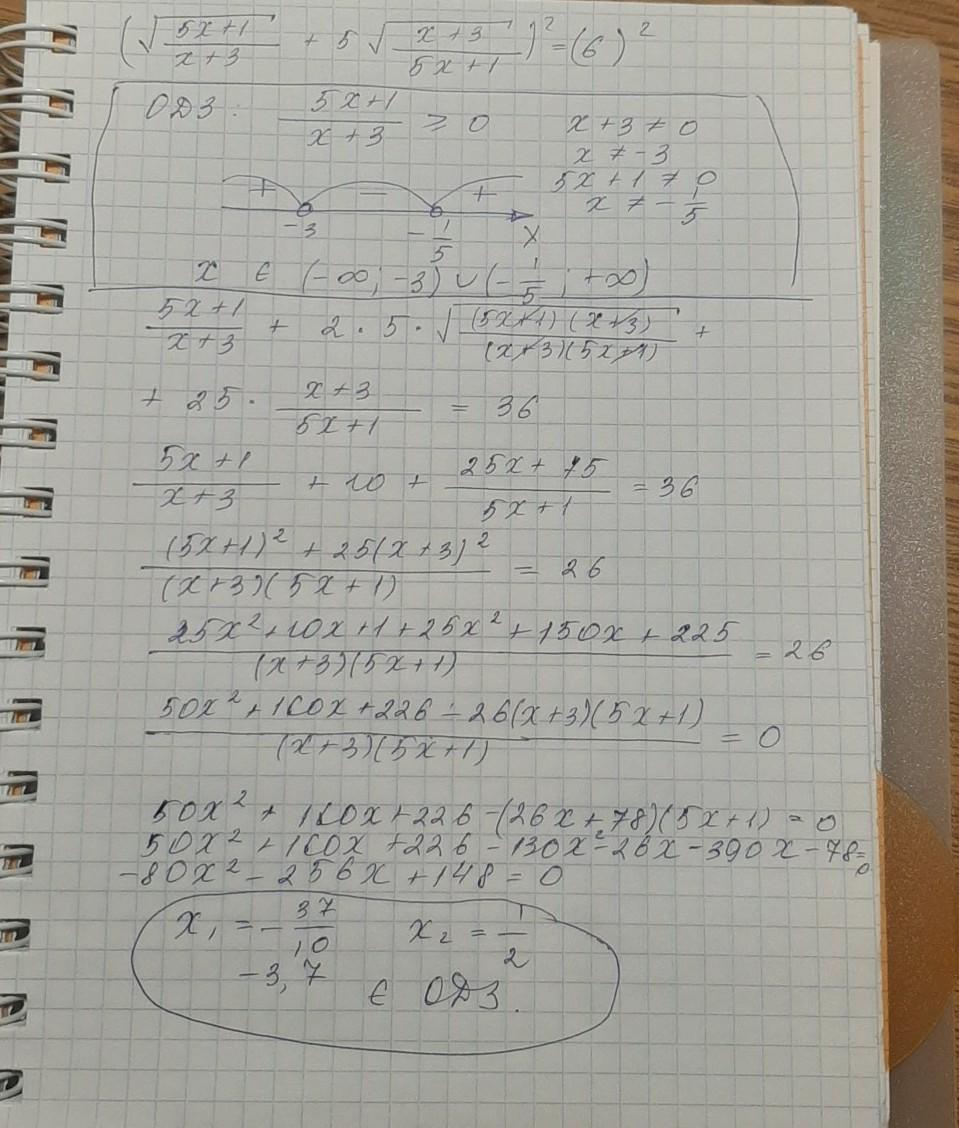 (√((5x+1)/(x+3)) + 5√((x+3)/(5x+1)))² = (6)²
ОДЗ: (5x+1)/(x+3) ≥ 0 x+3 ≠ 0
x ≠ -3
5x+1 ≠ 0
x ≠ -1/5
+ − +
-3 -1/5 x
x ∈ (-∞; -3) ∪ (-1/5; +∞)
(5x+1)/(x+3) + 2 · 5 · √((5x+1)(x+3)/(x+3)(5x+1)) +
+ 25 · (x+3)/(5x+1) = 36
(5x+1)/(x+3) + 10 + (25x+75)/(5x+1) = 36
((5x+1)² + 25(x+3)²)/((x+3)(5x+1)) = 26
(25x²+10x+1+25x²+150x+225)/((x+3)(5x+1)) = 26
(50x²+160x+226-26(x+3)(5x+1))/((x+3)(5x+1)) = 0
50x² + 160x+226-(26x+78)(5x+1) = 0
50x² + 160x +226 - 130x²-26x-390x-78=0
-80x² - 256x + 148 = 0
x₁ = -37/10 x₂ = 1/2
-3,7
∈ ОДЗ.